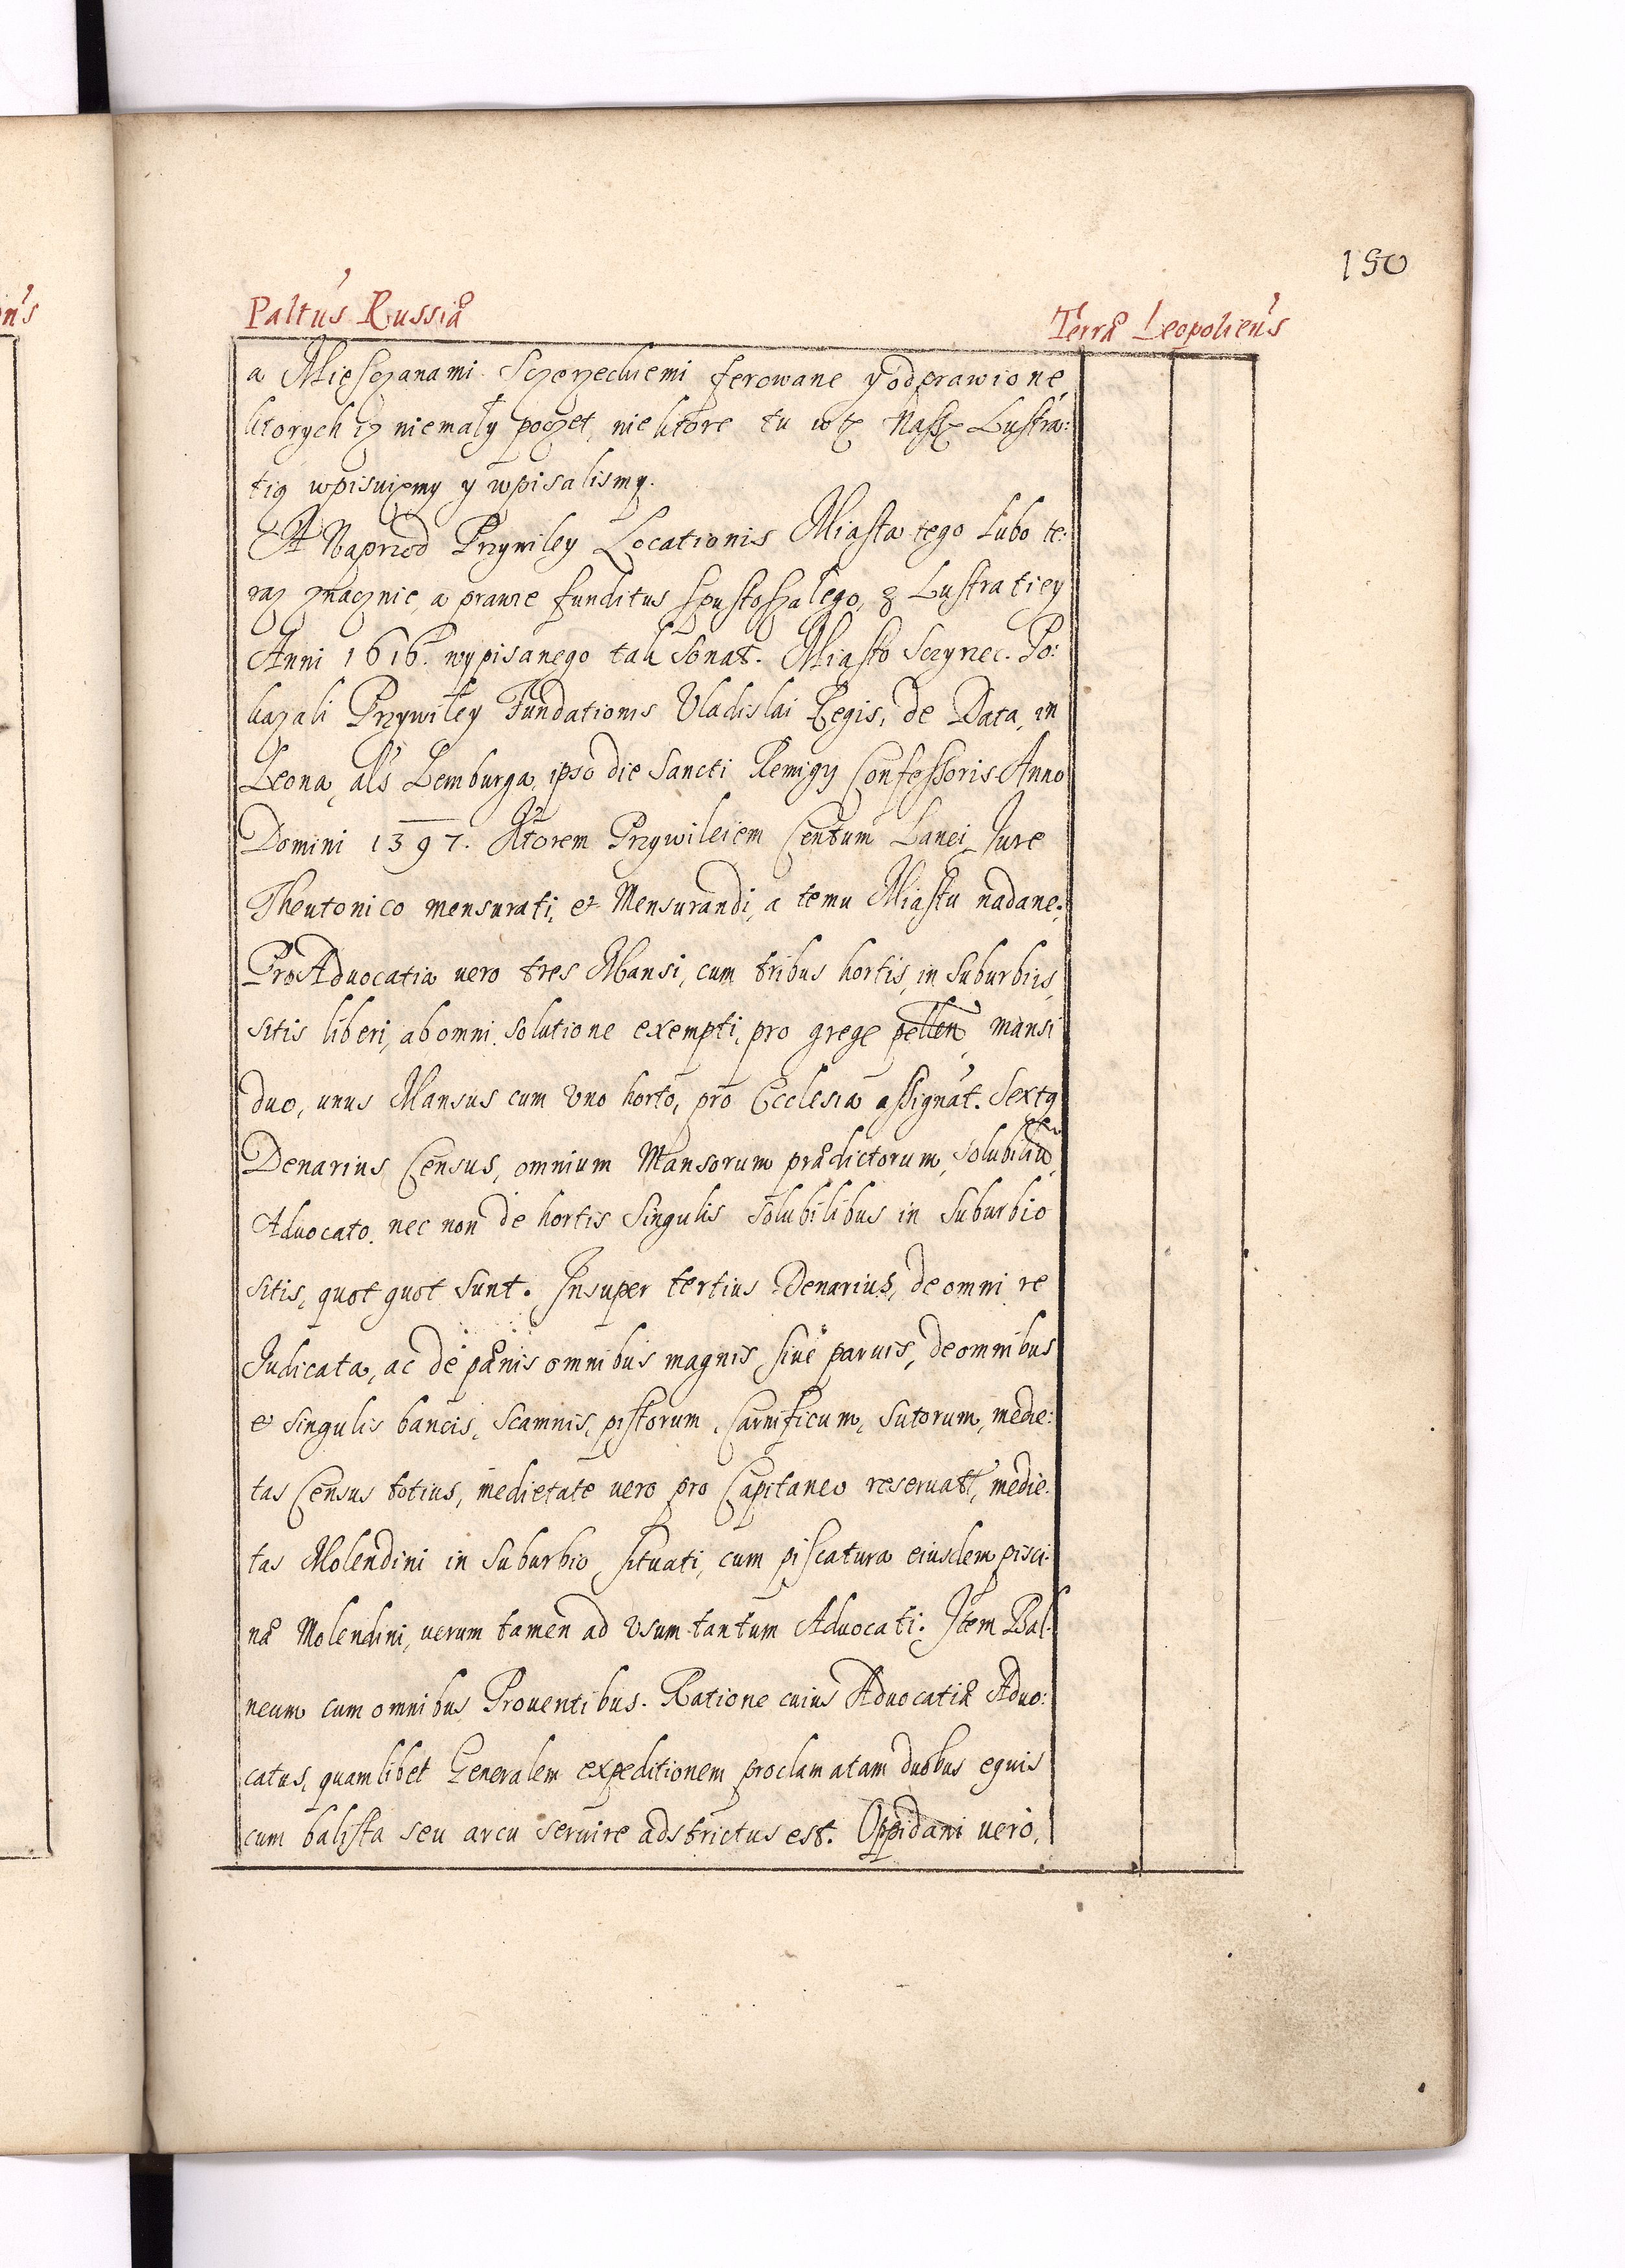 150
Paltus Russiæ
Terræ Leopoliens
a Mieszczanami Sczerzeckiemi ferowane y odprawione,
ktorych iż niemały poczet, niektore tu w tę Naszę Lustra:
tią wpisuięmy y wpisalismy.
A Naprzod Przywiley Locationis Miasta tego lubo te:
raz znacznie, a prawie funditus spustoszałego, z Lustratiey
Anni 1616. wypisanego tak sonat. Miasto Sczyrzec. Po:
kazali Przywiley Fundationis Vladislai Regis, de Data, in
Leona, als Lemburga, ipso die Sancti Remigy Confessoris Anno
Domini 1397. Ktorem Przywileiem Centum Lanei Jure
Theutonico mensurati, et Mensurandi, a temu Miastu nadane.
Pro Advocatia vero tres Mansi, cum tribus hortis, in Suburbijs,
sitis liberi, ab omni solutione exempti, pro grege pellen mansi
duo, unus Mansus cum uno horto, pro Ecclesia assignat. Sexty
Denarius Census, omnium Mansorum prædictorum, solubiliu,
Advocato. nec non de hortis singulis solubilibus in Suburbio
sitis, quot quot sunt. Insuper tertius Denarius, de omni re
Judicata, ac de pænis omnibus magnis sive parvis, de omnibus
et singulis bancis, scamnis, pistorum, Carnificum, Sutorum, medie:
tas Census totius, medietate vero pro Capitaneo reservatt, medie.
tas Molendini in Suburbio situati, cum piscatura eiusdem pisci.
næ Molendini, verum tamen ad Usum tantum Advocati. Item Bal.
neum cum omnibus Proventibus. Ratione cuius Advocatiæ Advo:
catus, quamlibet Generalem expeditionem proclamatam duobus equis
cum balista seu arcu servire adstrictus est. Oppidani vero,